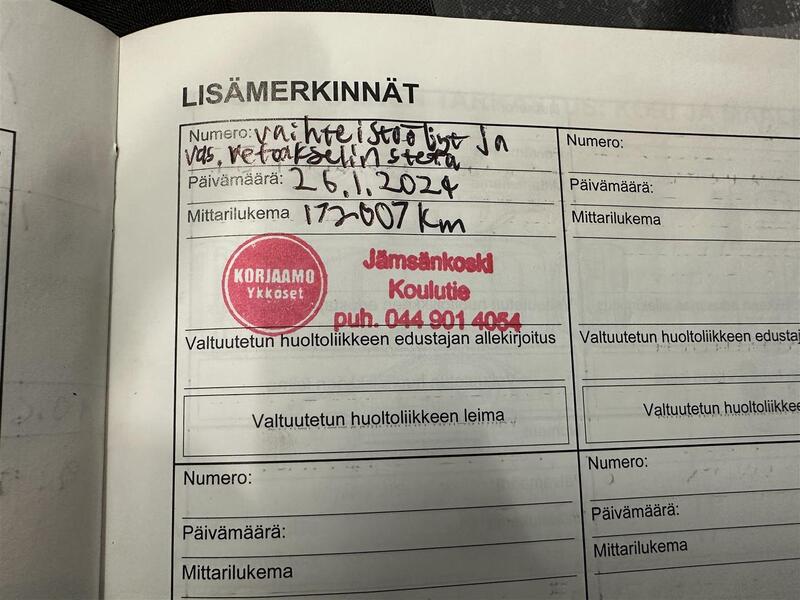 LISÄMERKINNÄT
Numero: vaihteistoöljyt ja
vas. vetoakselin stefa
Päivämäärä: 26.1.2024
Mittarilukema 172 007 km
KORJAAMO
Ykköset
Jämsänkoski
Koulutie
puh. 044 901 4054
Valtuutetun huoltoliikkeen edustajan allekirjoitus
Valtuutetun huoltoliikkeen leima
Numero:
Päivämäärä:
Mittarilukema
Numero:
Päivämäärä:
Mittarilukema
Valtuutetun huoltoliikkeen edustaj
Valtuutetun huoltoliikkee
Numero:
Päivämäärä:
Mittarilukema